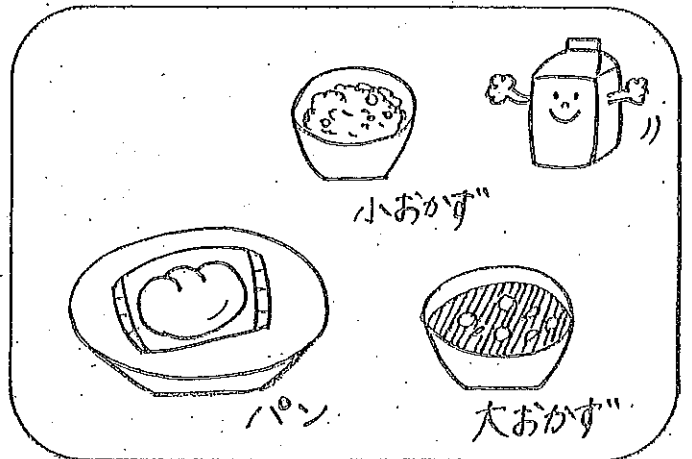 小おかず
パン
大おかず